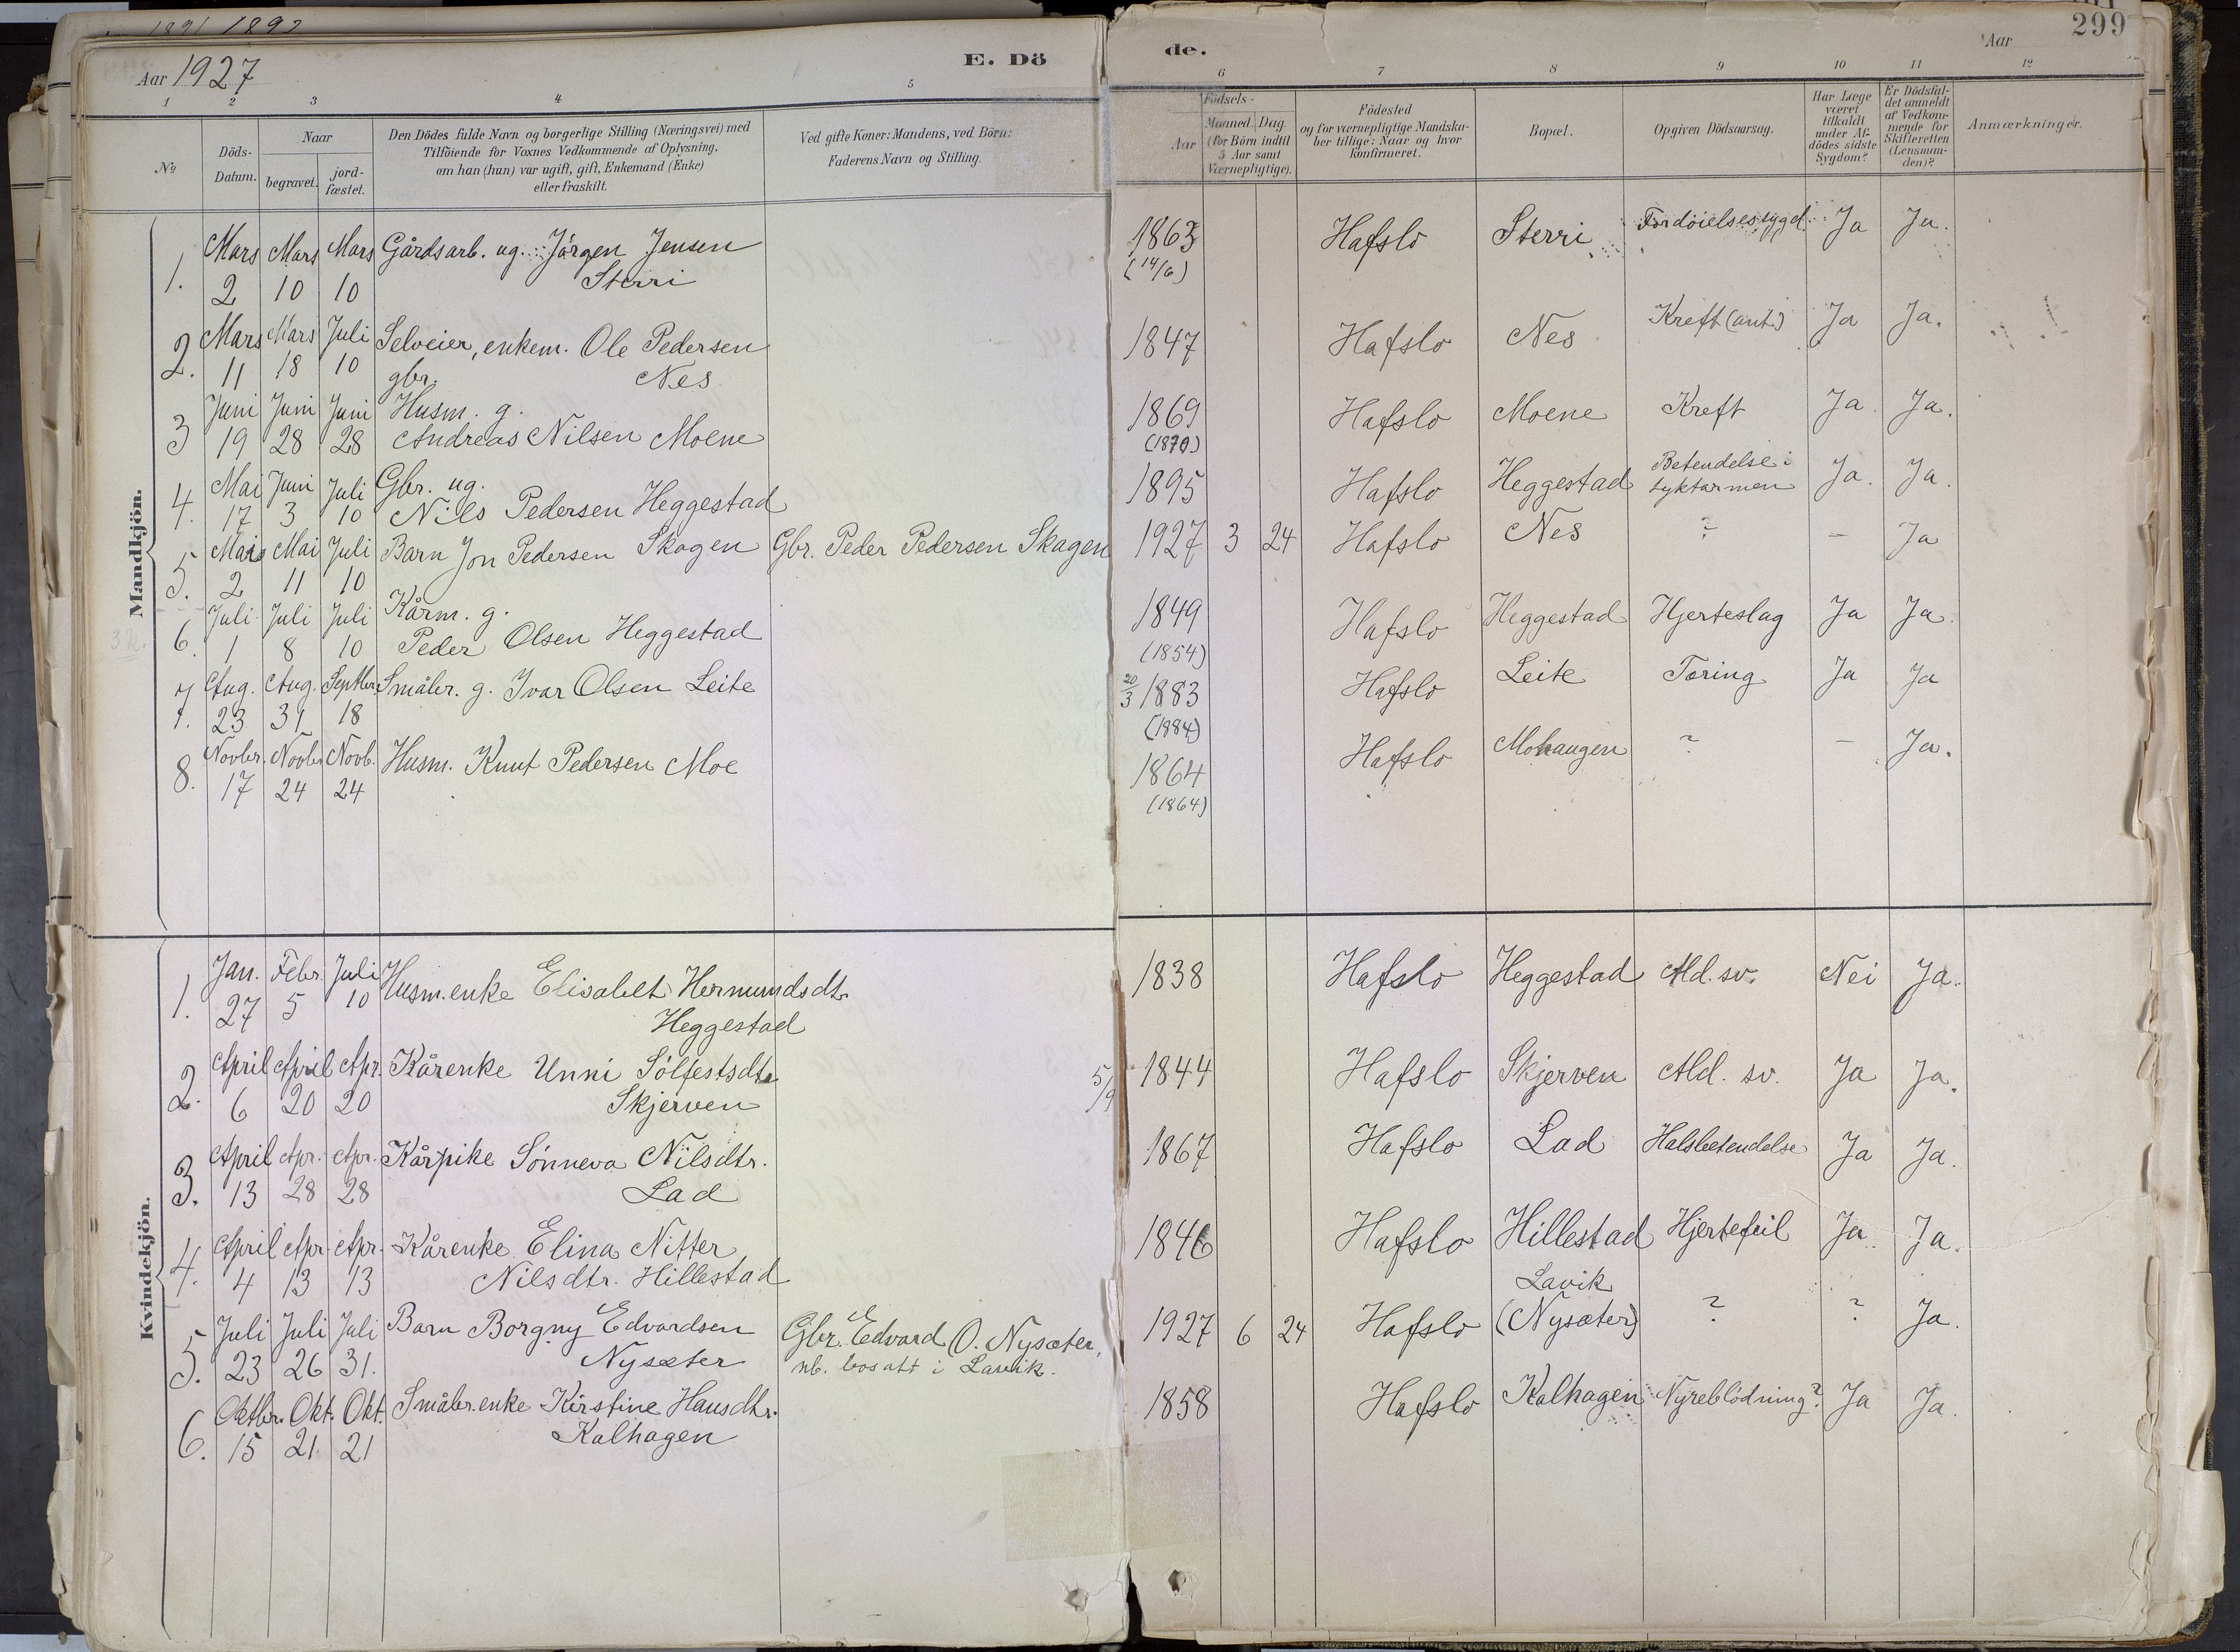 1891 1892
Aar 1927
E. Dö
de.
Aar
299
1 2 3 4 5 6 7 8 9 10 11 12
No
Döds-Datum.
Naar
begravet.
jord-fæstet.
Den Dödes fulde Navn og borgerlige Stilling (Næringsvei) med
Tilföiende for Voxnes Vedkommende af Oplysning,
om han (hun) var ugift, gift, Enkemand (Enke)
eller fraskilt.
Ved gifte Koner: Mandens, ved Börn:
Faderens Navn og Stilling.
Födsels-
Aar
Maaned. Dag.
(for Börn indtil
5 Aar samt
Værnepligtige).
Födested
og for værnepligtige Mandska-
ber tillige: Naar og hvor
konfirmeret.
Bopæl.
Opgiven Dödsaarsag.
Har Læge
været
tilkaldt
under Af-
dödes sidste
Sygdom?
Er Dödsfal-
det anmeldt
af Vedkom-
mende for
Skifteretten
(Lensman-
den)?
Anmærkninger.
Mandkjön.
Mars Mars Mars Gårdsarb. ug. Jörgen Jensen 1863 Hafslo Sterri Fordöielsessygd. Ja Ja.
1. 2 10 10 Sterri (14/6)
Mars Mars Juli Selveier, enkem. Ole Pedersen 1847 Hafslo Nes Kreft (ant.) Ja Ja.
2. 11 18 10 gbr. Nes
Juni Juni Juni Husm. g. 1869 Hafslo Moene Kreft Ja. Ja.
3 19 28 28 Andreas Nilsen Moene (1870)
Mai Juni Juli Gbr. ug. 1895 Hafslo Heggestad Betendelse i Ja. Ja.
4. 17 3 10 Nils Pedersen Heggestad tyktarmen
Mai Mai Juli Barn Jon Pedersen Skagen Gbr. Peder Pedersen Skagen 1927 3 24 Hafslo Nes ? - Ja
5. 2 11 10
Juli Juli Juli Kårm. g. 1849 Hafslo Heggestad Hjerteslag Ja Ja.
3k. 6. 1 8 10 Peder Olsen Heggestad (1854)
7 Aug. Aug. Septbr. Småbr. g. Ivar Olsen Leite 20/3 1883 Hafslo Leite Tæring Ja Ja
23 31 18 (1884)
Novbr. Novbr. Novb. Husm. Knut Pedersen Moe 1864 Hafslo Mohaugen ? - Ja.
8. 17 24 24 (1864)
Kvindekjön.
Jan. Febr. Juli Husm.enke Elisabet Hermundsdtr. 1838 Hafslo Heggestad Ald. sv. Nei Ja.
1. 27 5 10 Heggestad
April April Apr. Kårenke Unni Sölfestsdtr. 5/9 1844 Hafslo Skjerven Ald. sv. Ja Ja.
2. 6 20 20 Skjerven
April Apr. Apr. Kårpike Sönneva Nilsdtr. 1867 Hafslo Lad Halsbetendelse Ja Ja.
3. 13 28 28 Lad
April Apr. Apr. Kårenke Elina Nitter 1846 Hafslo Hillestad Hjertefeil Ja. Ja.
4. 4 13 13 Nilsdtr. Hillestad
Lavik
Juli Juli Juli Barn Borgny Edvardsen Gbr. Edvard O. Nysæter, 1927 6 24 Hafslo (Nysæter) ? ? Ja.
5. 23 26 31. Nysæter nb. bosatt i Lavik.
Oktbr. Okt. Okt. Småbr.enke Kirstine Hansdtr. 1858 Hafslo Kalhagen Nyreblödning? Ja Ja.
6. 15 21 21 Kalhagen